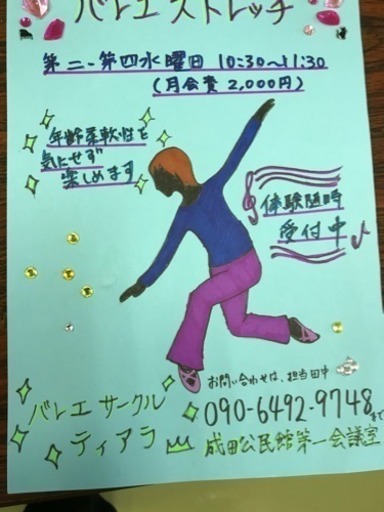 バレエストレッチ
第二、第四水曜日 10:30~11:30
(月会費 2,000円)
年齢柔軟性を
気にせず
楽しめます
体験随時
受付中
お問い合わせは、担当田中
090-6492-9748まで
バレエサークル
ティアラ
成田公民館第一会議室